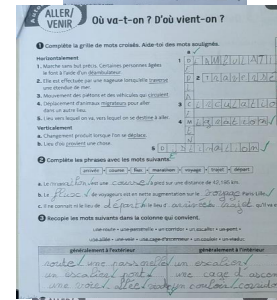 ALLER/
VENIR
Où va-t-on ? D'où vient-on ?
1 Complète la grille de mots croisés. Aide-toi des mots soulignés.
Horizontalement
1. Marche sans but précis. Certaines personnes âgées
le font à l'aide d'un déambulateur.
2. Elle est effectuée par une nageuse lorsqu'elle traverse
une étendue de mer.
3. Mouvement des piétons et des véhicules qui circulent.
4. Déplacement d'animaux migrateurs pour aller
dans un autre lieu.
5. Lieu vers lequel on va, vers lequel on se destine à aller.
Verticalement
a. Changement produit lorsque l'on se déplace.
b. Lieu d'où provient une chose.
2 Complète les phrases avec les mots suivants.
arrivée - course - flux - marathon - voyage - trajet - départ
a. Le marathon est une course à pied sur une distance de 42,195 km.
b. Le flux de voyageurs est en nette augmentation sur le voyage Paris-Lille.
c. Il ne connaît ni le lieu de départ ni le lieu d'
3 Recopie les mots suivants dans la colonne qui convient.
une route - une passerelle - un corridor - un escalier - un pont -
une allée - une voie - une cage d'ascenseur - un couloir - un viaduc
généralement à l'extérieur
généralement à l'intérieur
route / une passerelle un escalier
un escalier pont une cage d'ascen
une voie allée un couloir